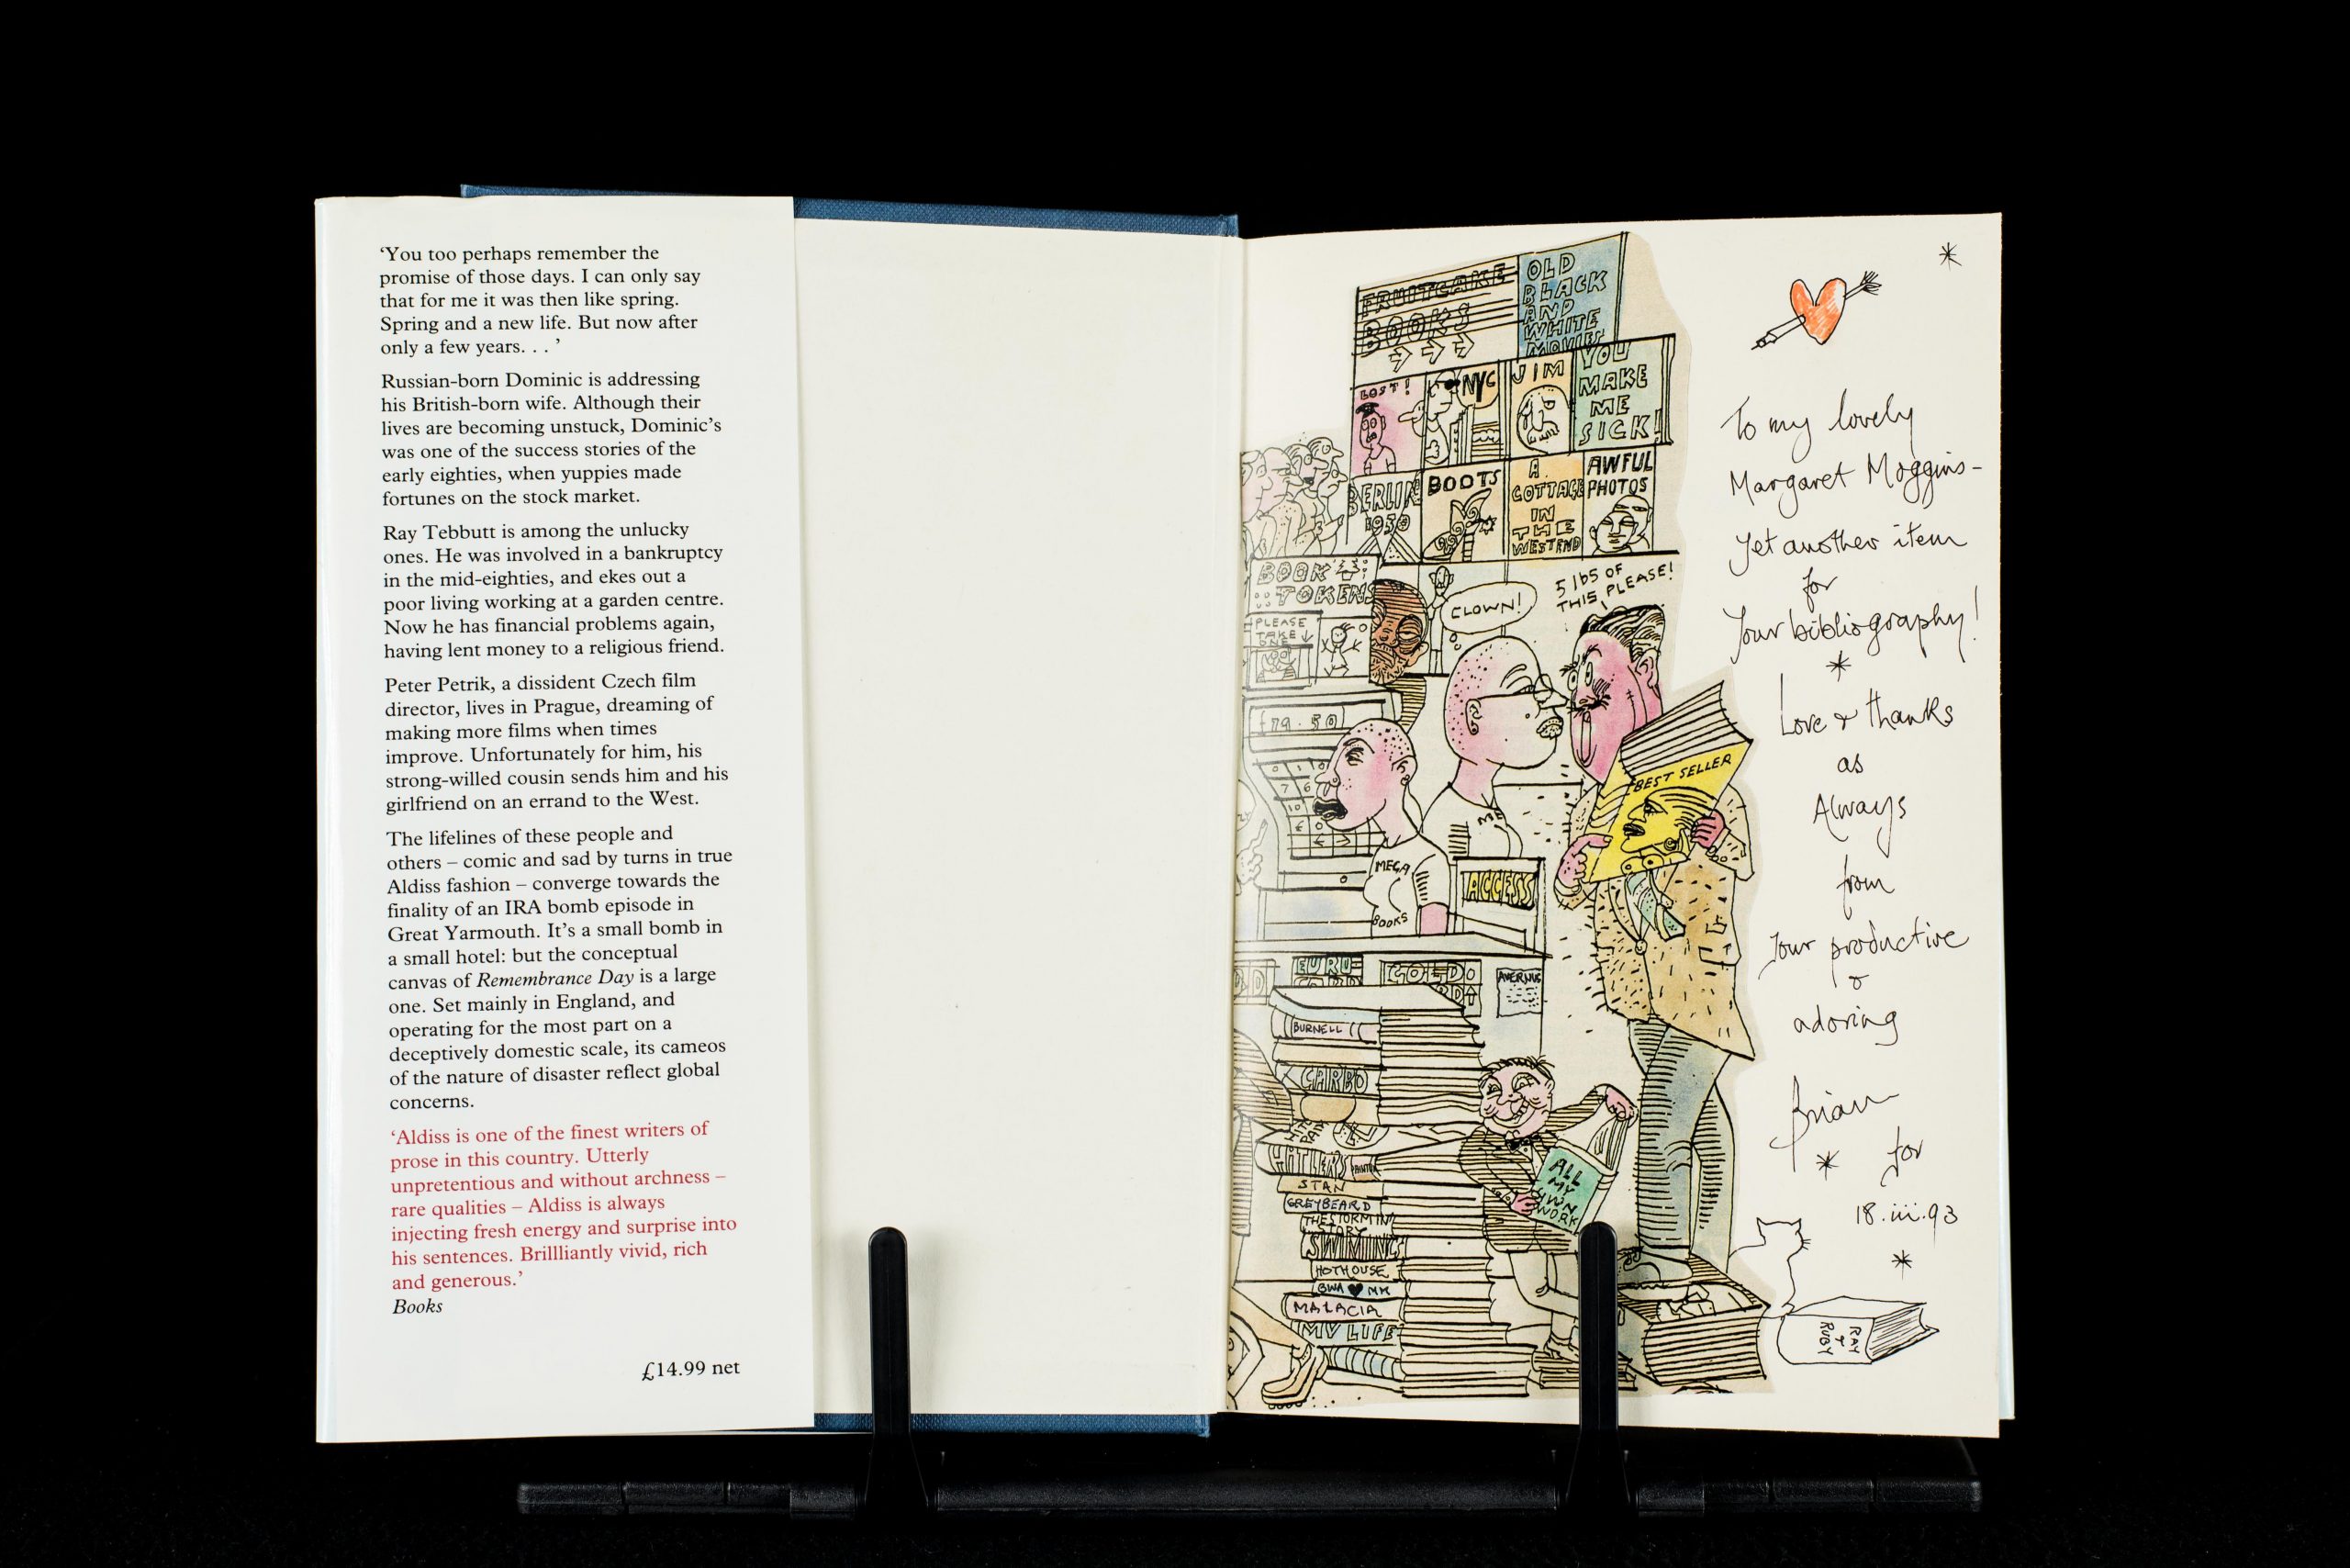 ‘You too perhaps remember the
promise of those days. I can only say
that for me it was then like spring.
Spring and a new life. But now after
only a few years. . . ’
Russian-born Dominic is addressing
his British-born wife. Although their
lives are becoming unstuck, Dominic’s
was one of the success stories of the
early eighties, when yuppies made
fortunes on the stock market.
Ray Tebbutt is among the unlucky
ones. He was involved in a bankruptcy
in the mid-eighties, and ekes out a
poor living working at a garden centre.
Now he has financial problems again,
having lent money to a religious friend.
Peter Petrik, a dissident Czech film
director, lives in Prague, dreaming of
making more films when times
improve. Unfortunately for him, his
strong-willed cousin sends him and his
girlfriend on an errand to the West.
The lifelines of these people and
others – comic and sad by turns in true
Aldiss fashion – converge towards the
finality of an IRA bomb episode in
Great Yarmouth. It’s a small bomb in
a small hotel: but the conceptual
canvas of Remembrance Day is a large
one. Set mainly in England, and
operating for the most part on a
deceptively domestic scale, its cameos
of the nature of disaster reflect global
concerns.
‘Aldiss is one of the finest writers of
prose in this country. Utterly
unpretentious and without archness –
rare qualities – Aldiss is always
injecting fresh energy and surprise into
his sentences. Brillliantly vivid, rich
and generous.’
Books
£14.99 net
FRUITCAKE
BOOKS
OLD
BLACK
AND
WHITE
MOVIES
LOST!
NYC
JIM
YOU
MAKE
ME
SICK!
BERLIN
1930
BOOTS
A
COTTAGE
IN
THE
WESTEND
AWFUL
PHOTOS
BOOK
TOKENS
PLEASE
TAKE
ONE
CLOWN!
5 lbs OF
THIS PLEASE!
£79.50
BEST SELLER
ME
MEGA
BOOKS
ACCESS
EURO
CARD
GOLD
AVERNUS
BURNELL
CARBO
HITLERS
STAN
GREYBEARD
THE STORM IN
STORY
SWIMING
HOTHOUSE
BWA ♥ MM
MALACIA
MY LIFE
ALL
MY
OWN
WORK
To my lovely
Margaret Moggins –
Yet another item
for
Your bibliography!
Love & thanks
as
Always
from
Your productive
&
adoring
Brian
for
18.iii.93
RAY
&
RUBY